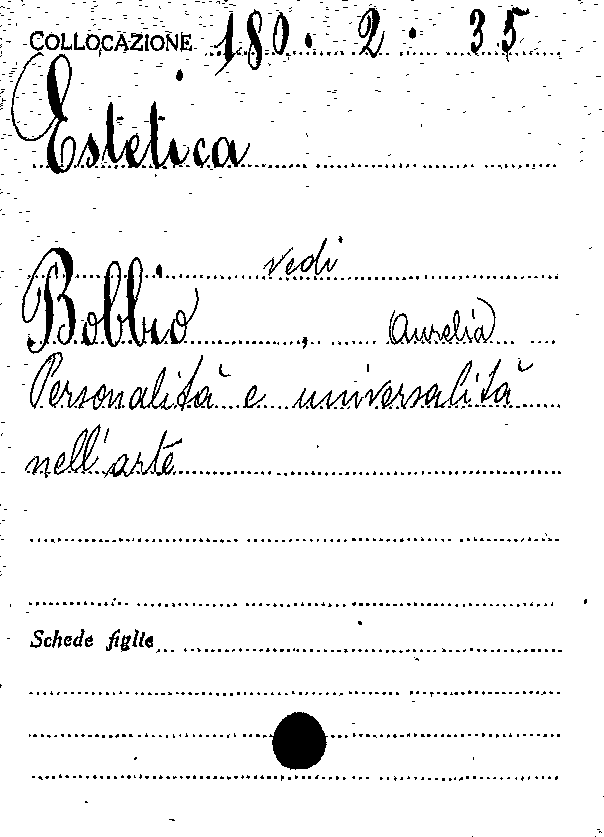 COLLOCAZIONE 180. 2. 35
Estetica
vedi
Bobbio, (Aurelia)
Personalità e universalità
nell'arte
Schede figlie